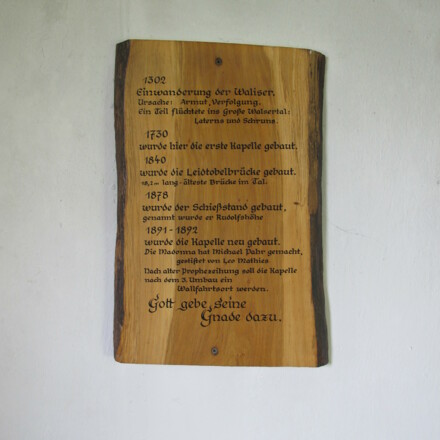 1302
Einwanderung der Waliser.
Ursache: Armut, Verfolgung.
Ein Teil flüchtete ins Große Walsertal:
Laterns und Schruns.
1730
wurde hier die erste Kapelle gebaut.
1840
wurde die Leidtobelbrücke gebaut.
18,2 m lang - älteste Brücke im Tal.
1878
wurde der Schießstand gebaut,
genannt wurde er Rudolfshöhe
1891 - 1892
wurde die Kapelle neu gebaut.
Die Madonna hat Michael Pahr gemacht,
gestiftet von Leo Mathies
Nach alter Propheseihung soll die Kapelle
nach dem 3. Umbau ein
Wallfahrtsort werden.
Gott gebe seine
Gnade dazu.